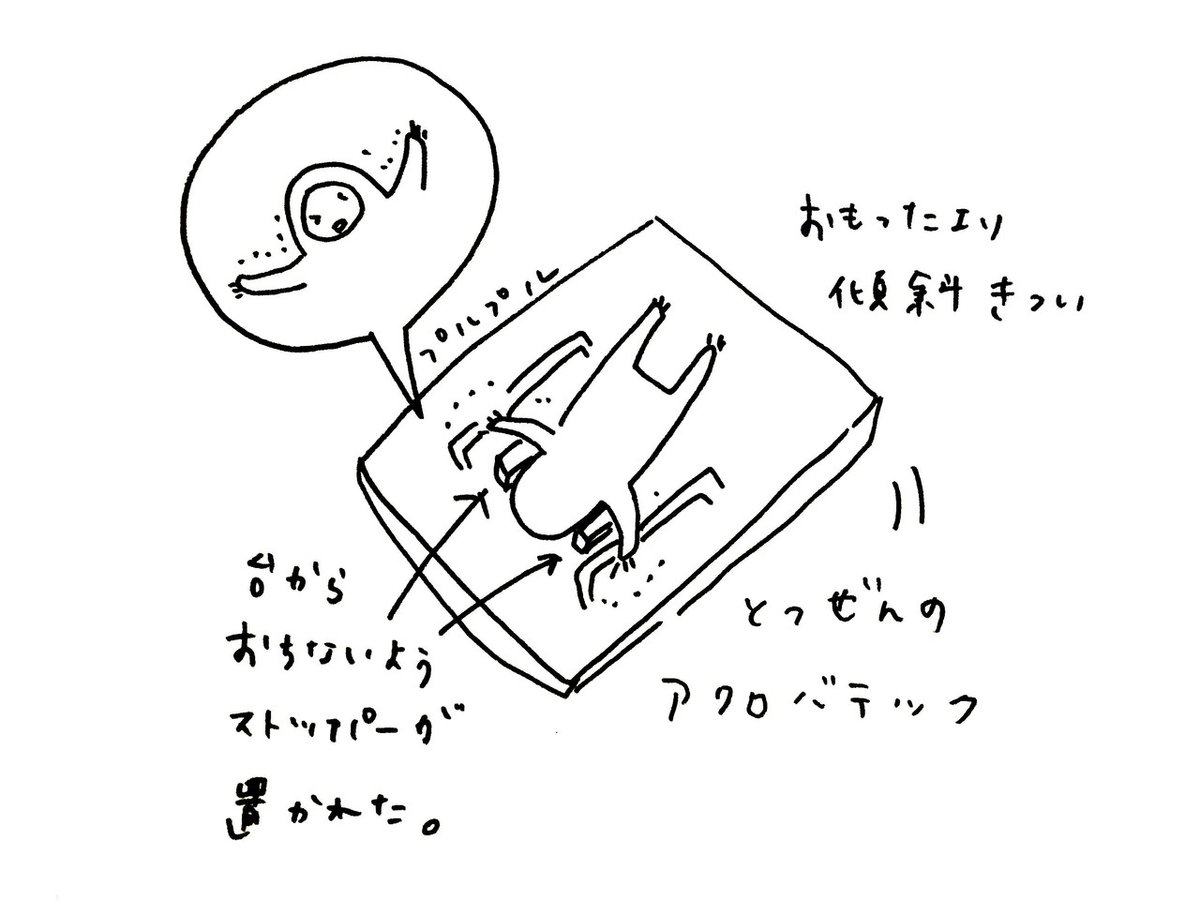 おもったより
傾斜きつい
プルプル
台から
おちないよう
ストッパーが
置かれた。
とつぜんの
アクロバテック